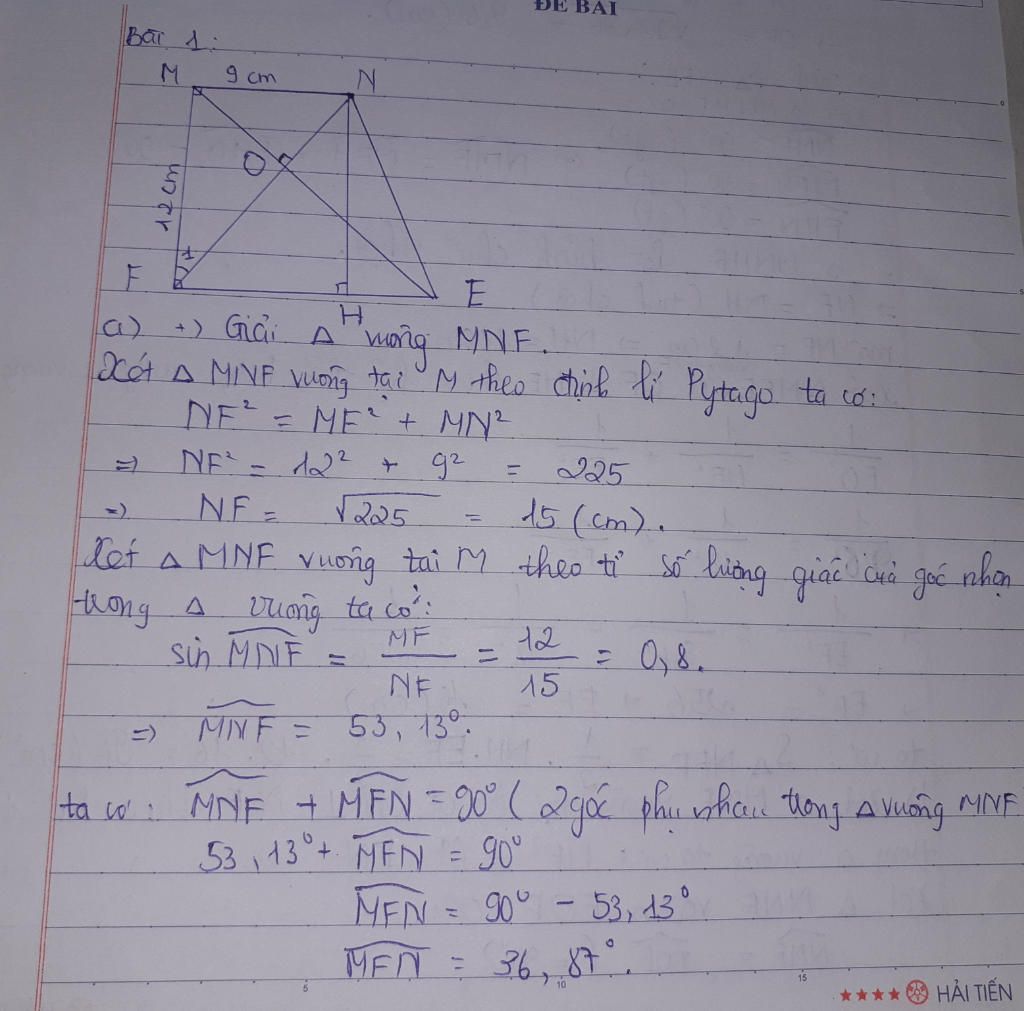 ĐỀ BÀI
Bài 1:
M 9 cm N
O
12 cm
1
F H E
a) +) Giải Δ vuông MNF.
Xét Δ MNF vuông tại M theo định lí Pytago ta có:
NF² = MF² + MN²
=> NF² = 12² + 9² = 225
=> NF = √225 = 15 (cm).
Xét Δ MNF vuông tại M theo tỉ số lượng giác của góc nhọn
trong Δ vuông ta có:
sin \widehat{MNF} = MF/NF = 12/15 = 0,8.
=> \widehat{MNF} = 53,13°.
ta có: \widehat{MNF} + \widehat{MFN} = 90° (2 góc phụ nhau trong Δ vuông MNF
53,13° + \widehat{MFN} = 90°
\widehat{MFN} = 90° - 53,13°
\widehat{MFN} = 36,87°.
5 10 15
★★★★ HẢI TIẾN